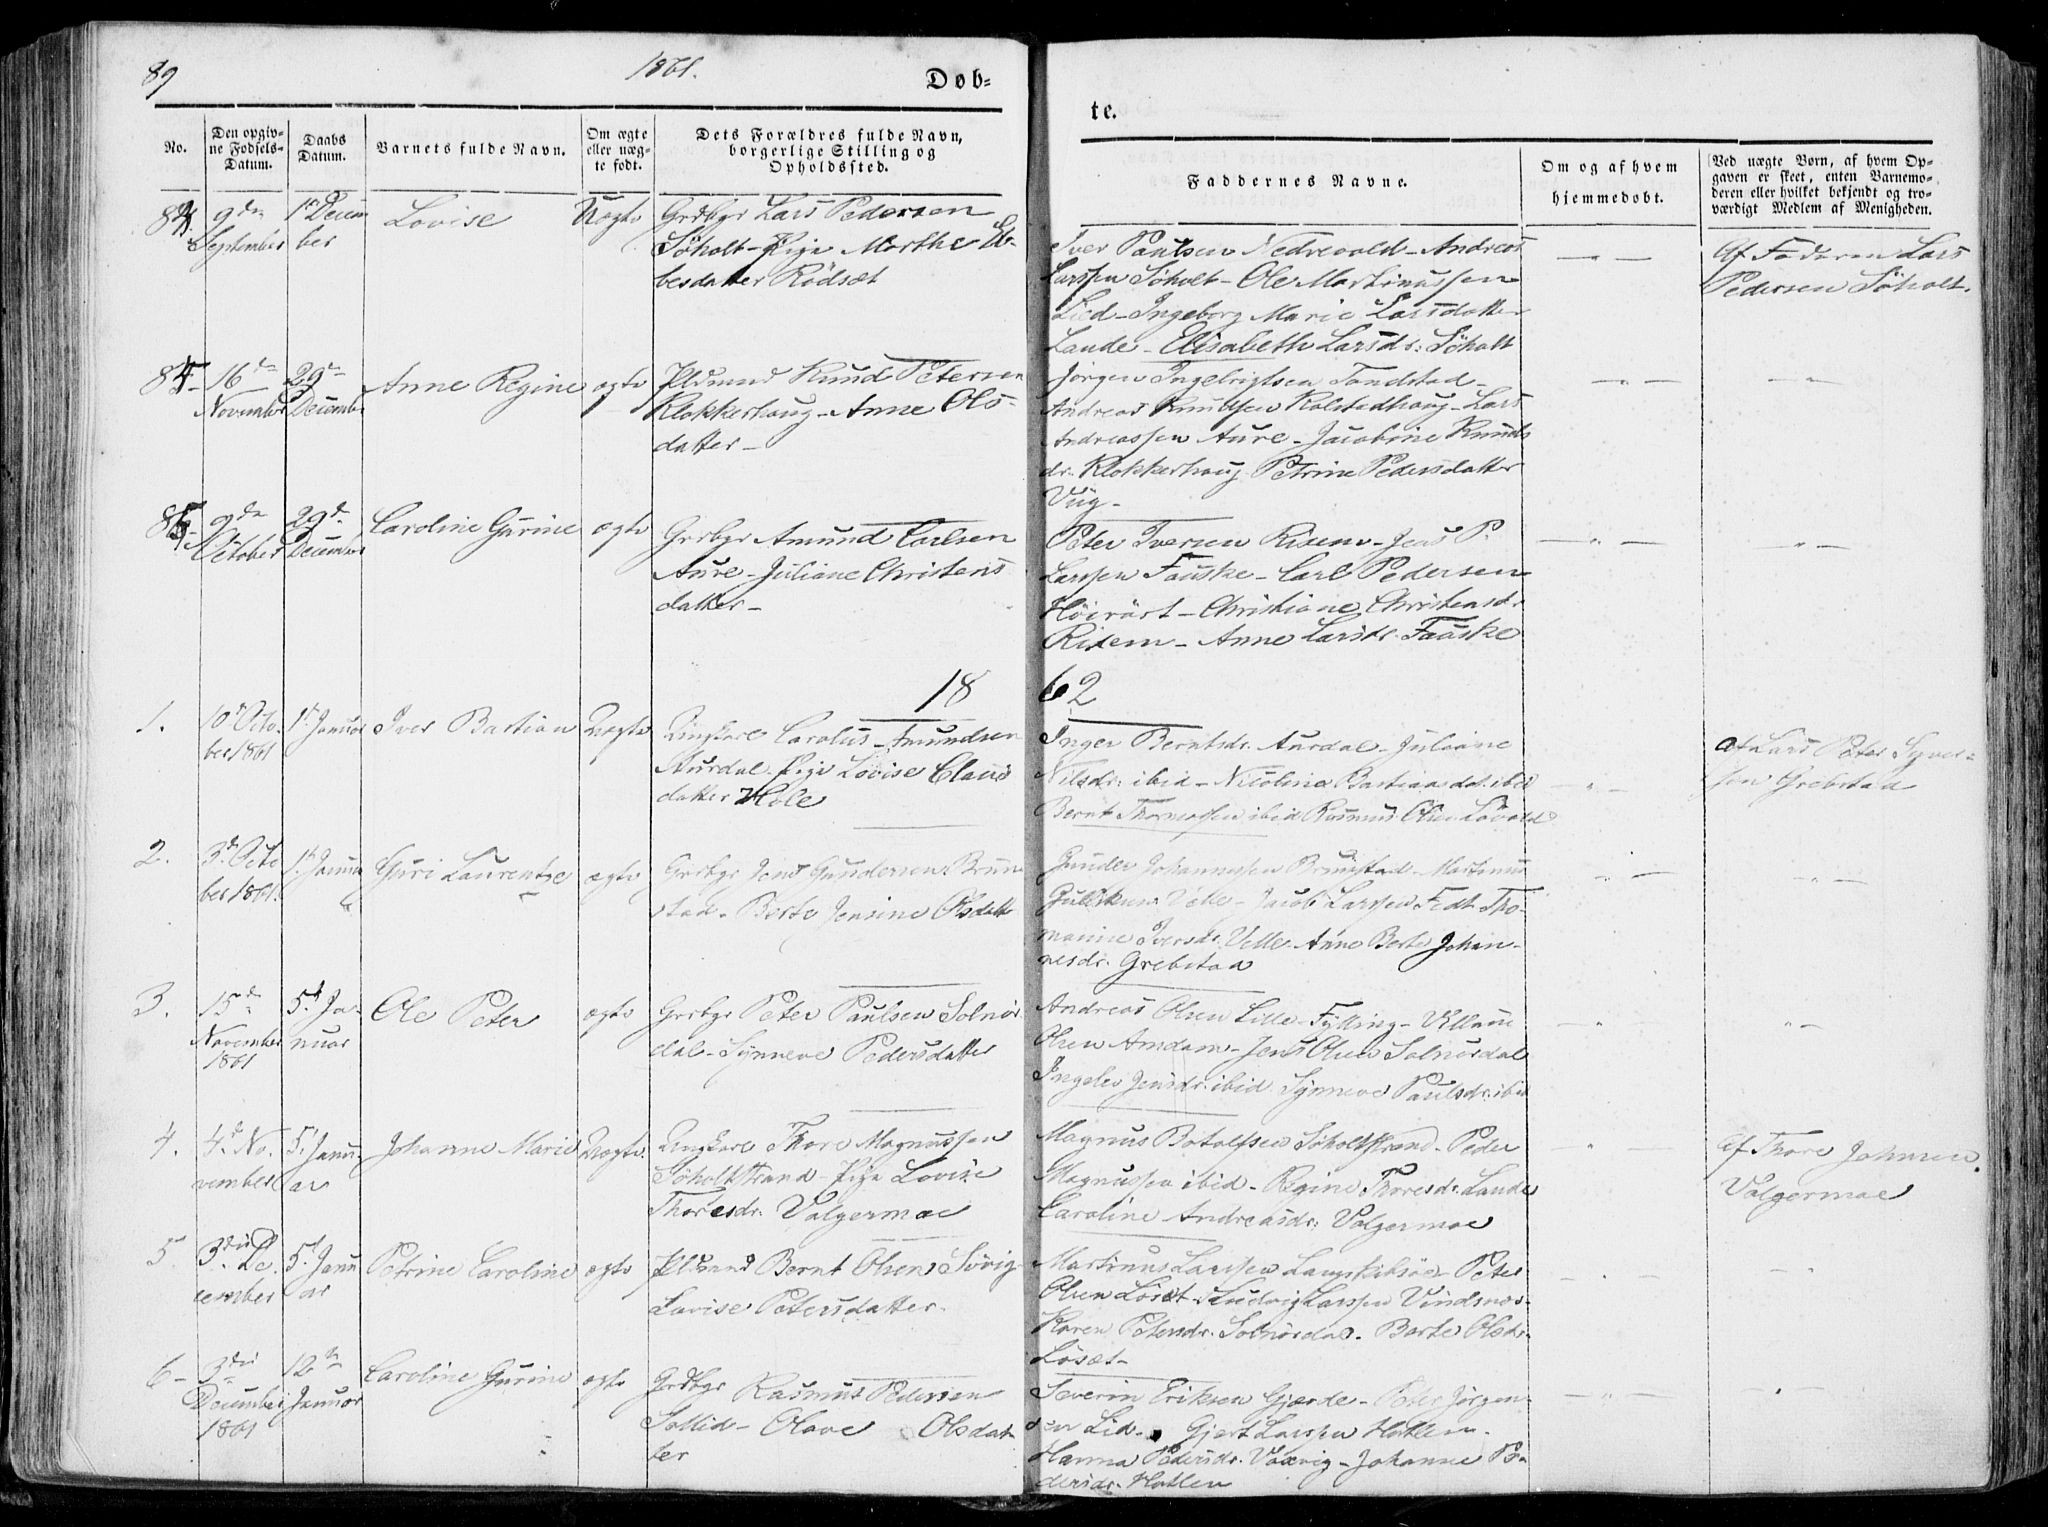 89
1861.
Døb=
te.
No.
Den opgiv-
ne Fødsels-
Datum.
Daabs
Datum.
Barnets fulde Navn.
Om ægte
eller uæg-
te født.
Dets Forældres fulde Navn,
borgerlige Stilling og
Opholdssted.
Faddernes Navne.
Om og af hvem
hjemmedøbt.
Ved uægte Børn, af hvem Op-
gaven er skeet, enten Barnemo-
deren eller hvilket bekjendt og tro-
værdigt Medlem af Menigheden.
84.
9de
September
1ste Decem
ber
Lovise
Uægte
Grdbgr Lars Pedersen
Søholt - Pige Marthe
besdatter Rödsæt
Iver Paulsen Nedrevold - Andreas
Larssen Søholt - Ole Martinussen
Lied - Ingeborg Marie Larsdatter
Lande - Elisabeth Larsdr: Søholt
Af Faderen Lars
Pedersen Søholt.
85-
16de
November
29de
Decembe
Anne Regine
ægte
Pldsmd Knud Petersen
Klokkerhaug - Anne Ols-
datter -
Jørgen Ingebrigtsen Tandstad -
Andreas Knudsen Kolstadhaug - Lars
Andreassen Aure - Jacobine Knuds
dr. Klokkerhaug Petrine Pedersdatter
Viig -
86-
9de
October
29de
December
Caroline Gurine
ægte
Grdbgr Amund Carlsen
Aure - Juliane Christens
datter -
Peter Iversen Risem - Jens P.
Larssen Fauske - Carl Pedersen
Christiane Christensdr
Risem - Anne Larsdr. Fauske
18 62
1.
10de Octo
ber 1861
1ste Januar
Iver Bastian
Uægte
Ungkarl Carolus Amundsen
Aurdal. Pige Lovise Claus
datter Hole
Inger Berntsdr. Aurdal - Juliane
Nilsdr. ibid - Nicoline Bastiansdat. ibid
Bernt Thomassen ibid Rasmus Olsen Løvold
Af Lars Peter Syver-
sen Grebstad
2.
3de Octo
ber 1861.
1ste Januar
Guri Laurentze
ægte
Grdbgr Jens Gundersen Brun
stad - Berte Jensine Olsdatt
Gunder Johannessen Brunstad - Martinus
Velle - Jacob Larssen Fedt Tho-
masine Iversdr. Velle - Anne Berte Johan-
nesdr. Grebstad
3.
15de
November
1861
5te Ja-
nuar
Ole Peter
ægte
Grdbgr Peter Paulsen Solnør
dal - Synneve Pedersdatter
Andreas Olsen Lille-Fylling - Villum
Olsen Amdam - Jens Olsen Solnørdal
Ingelev Jensdr. ibid Synneve Paulsdr. ibid
4.
4de No.
vember
5te Janu-
ar
Johanne Marie
Uægte.
Ungkarl Thore Magnussen
Søholtstrand - Pige Lovise
Thoresdr: Valgermoe
Magnus Botolfsen Søholtstrand - Peder
Magnussen ibid - Regine Thoresdr. Lande
Caroline Andreasdr: Valgermoe
Af Thore Johnsen.
Valgermoe
5.
3die De
cember
5te Janu
ar
Petrine Caroline
ægte
Pldsmd Bernt Olsen Søvig
Lovise Petersdatter.
Martinus Larssen Peter
Olsen Løset - Ludvig Larssen Vindsnes-
Karen Petersdr. Solnørdal. Berte Olsdr
Løsæt -
6-
3die
December
1861
12te
Januar
Caroline Gurine
ægte
Grdbgr Rasmus Pedersen
Sollid - Olave Olsdat-
ter
Severin Eriksen Gjærde - Peter Jørgen
sen Lid - Gjert Larssen Hatlem -
Hanna Pedersdr. Vaxvig - Johanne Pe-
dersdr. Hatlen